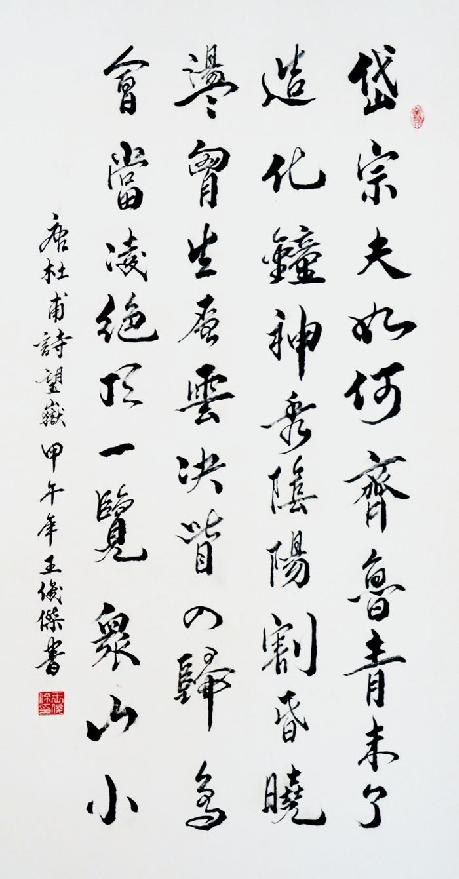 岱宗夫如何齊魯青未了
造化鐘神秀陰陽割昏曉
盪胷生層雲决眥入歸鳥
會當凌絕頂一覽眾山小
唐杜甫詩望嶽甲午年王儀傑書